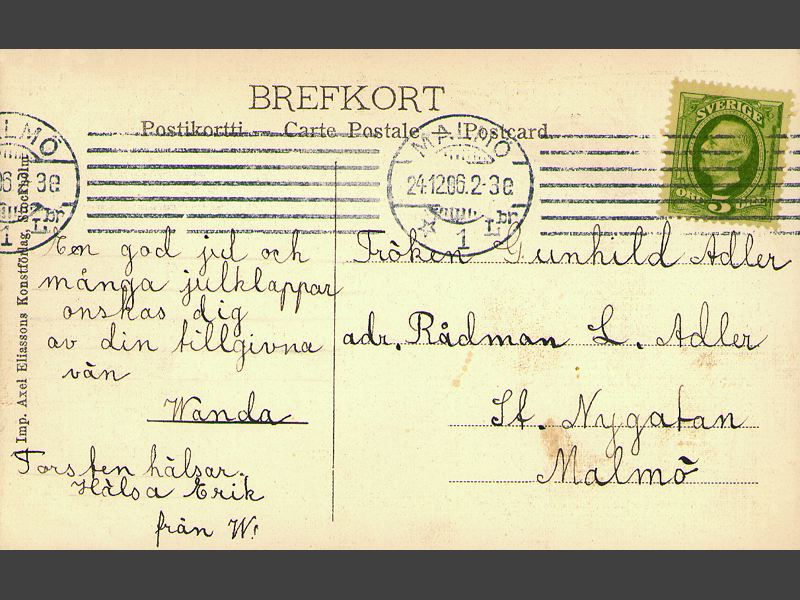 BREFKORT
Postikortti — Carte Postale — Postcard
SVERIGE
5
MALMÖ
24.12.06.2-3 e
1
L. br.
En god jul och
många julklappar
onskas dig
av din tillgivna
vän
Wanda
Torsten hälsar.
Hälsa Erik
från W!
Fröken Gunhild Adler
adr. Rådman L. Adler
St. Nygatan
Malmö
Imp. Axel Eliassons Konstförlag, Stockholm